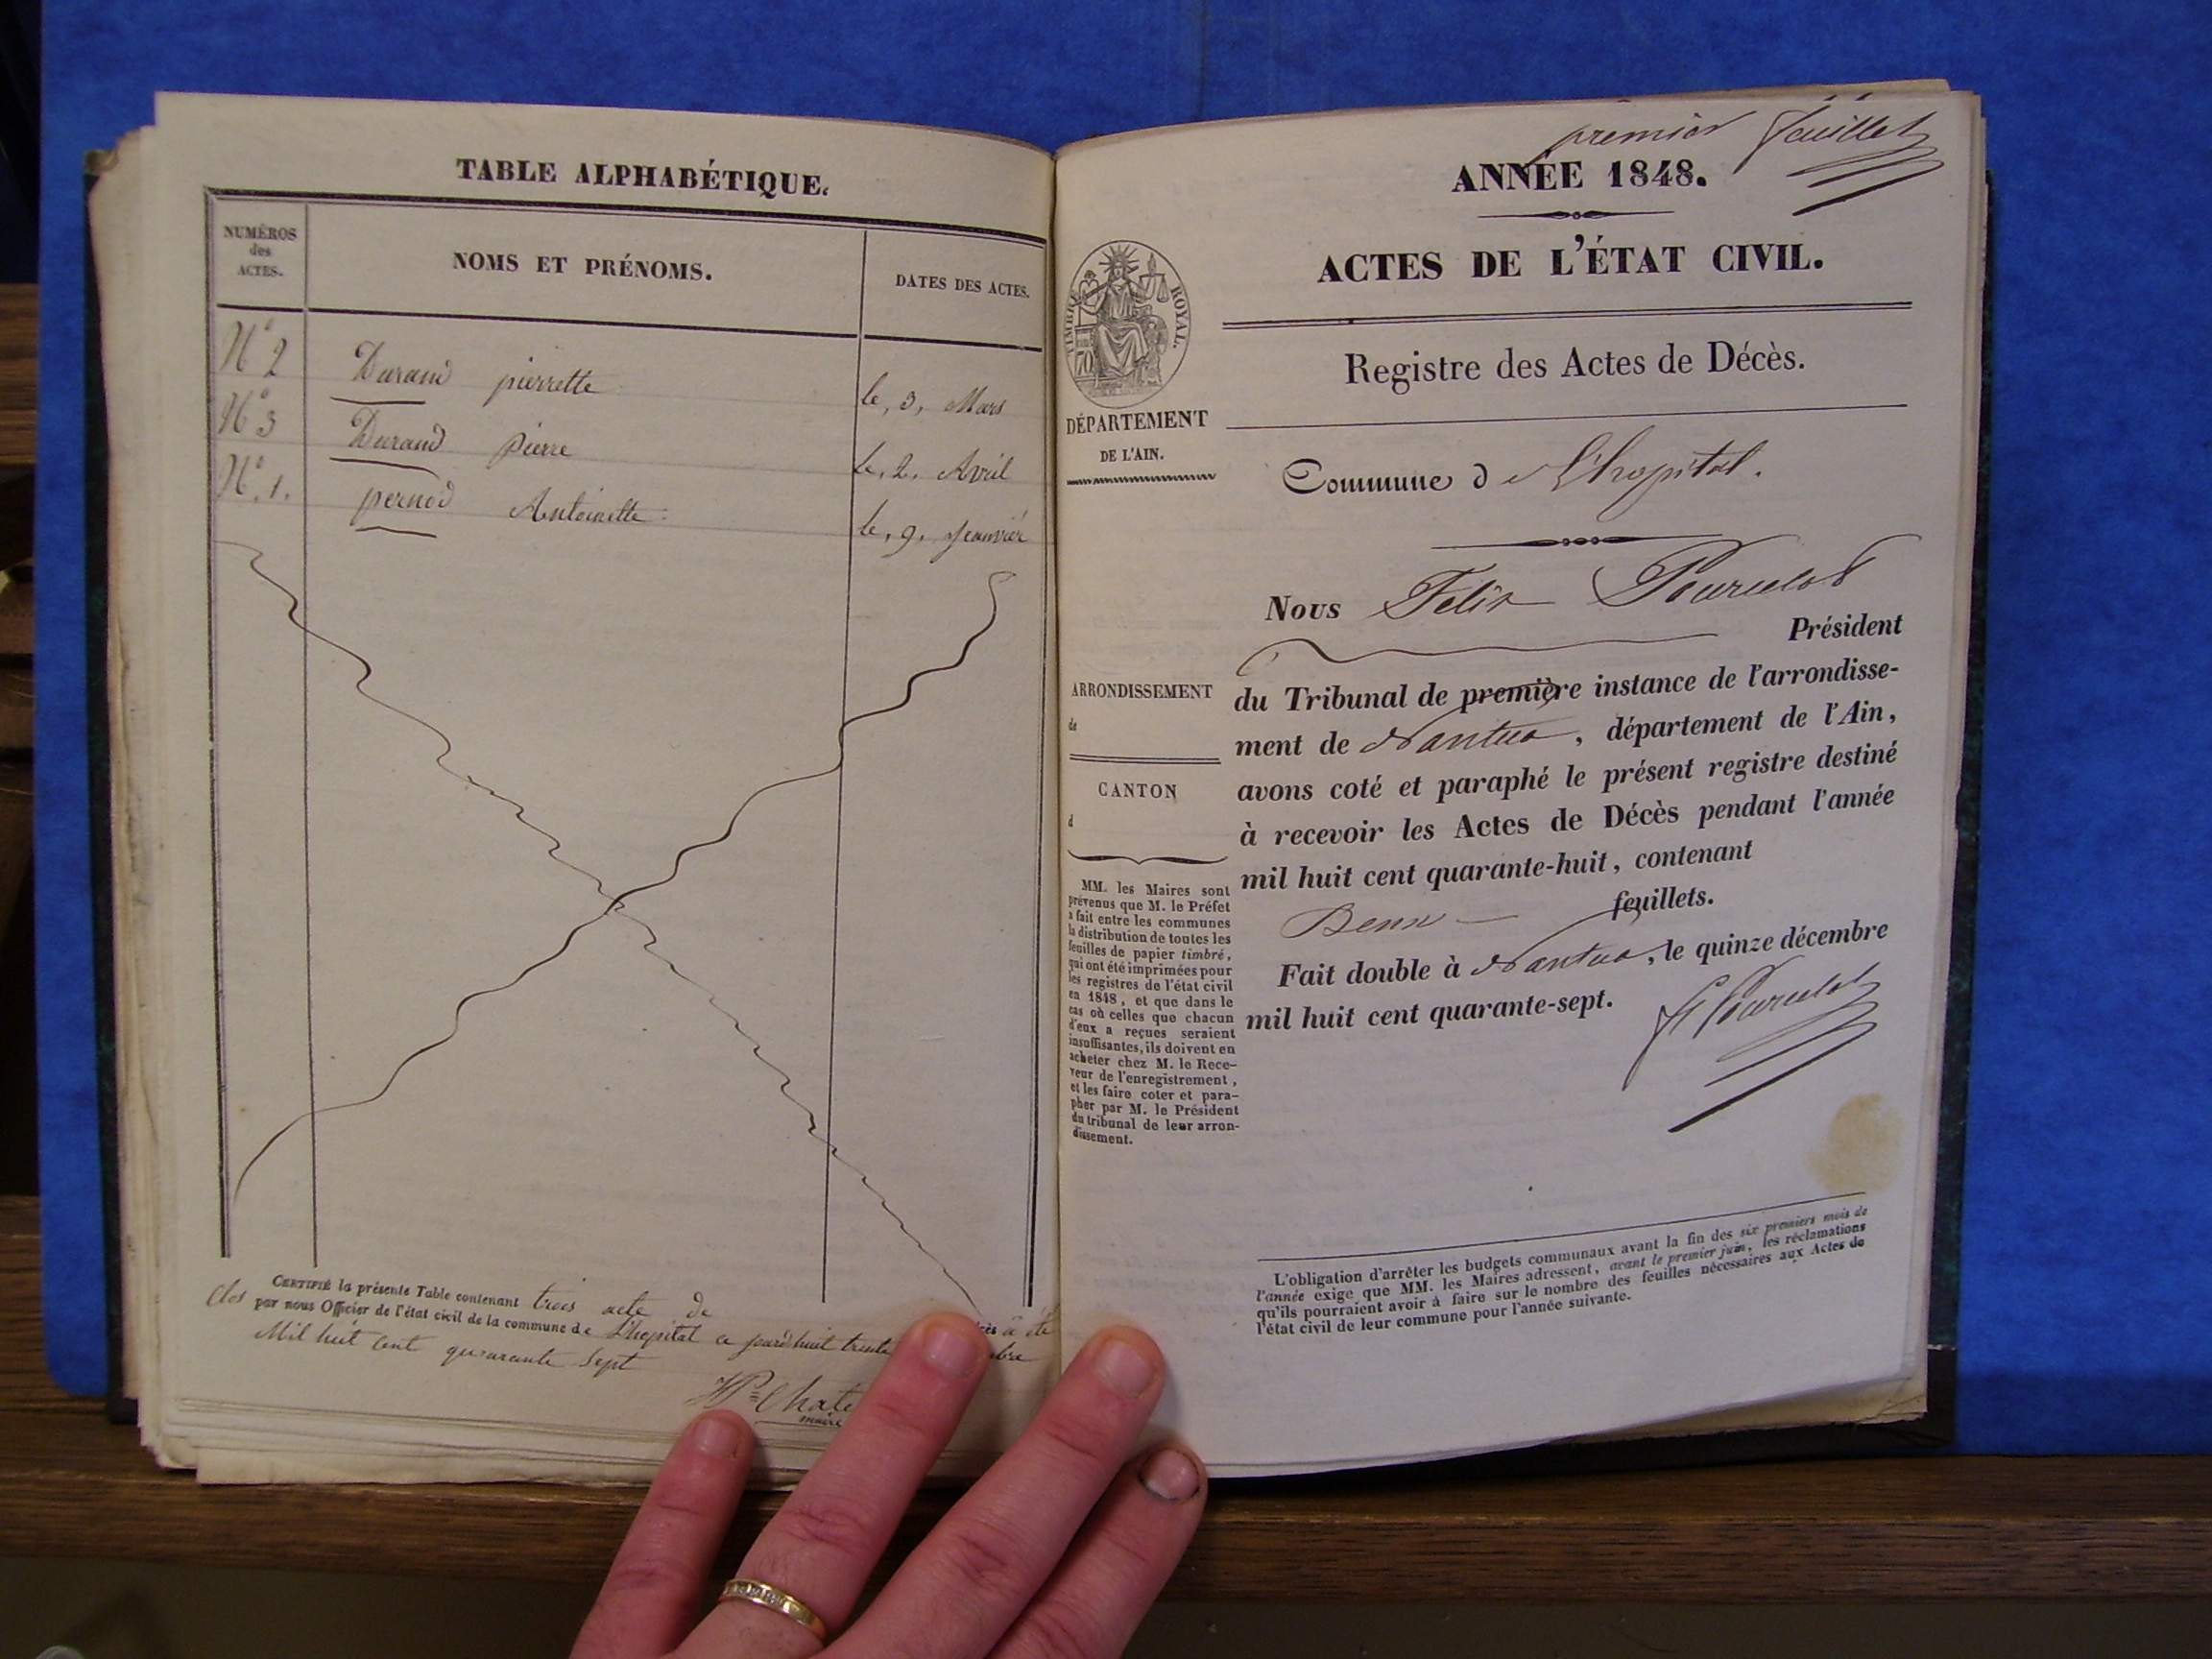 TABLE ALPHABÉTIQUE.
NUMÉROS
des
ACTES.
NOMS ET PRÉNOMS.
DATES DES ACTES.
N° 2 Durand pierrette le, 3, Mars
N° 3 Durand pierre le, 2, Avril
N° 1. pernod Antoinette le, 9, Jeanvier
CERTIFIÉ la présente Table contenant trois acte de à été
Clos par nous Officier de l'état civil de la commune de L'hopital ce jourdhuit trente
Mil huit cent quarante Sept
maire
premier feuillet
ANNÉE 1848.
ACTES DE L'ÉTAT CIVIL.
TIMBRE ROYAL.
Registre des Actes de Décès.
DÉPARTEMENT
DE L'AIN.
Commune d e L'hopital.
Nous Félix Pourcelot
Président
du Tribunal de première instance de l'arrondisse-
ment de Nantua, département de l'Ain,
avons coté et paraphé le présent registre destiné
à recevoir les Actes de Décès pendant l'année
mil huit cent quarante-huit, contenant
feuillets.
Fait double à Nantua, le quinze décembre
mil huit cent quarante-sept.
ARRONDISSEMENT
de
CANTON
d
MM. les Maires sont
prévenus que M. le Préfet
a fait entre les communes
la distribution de toutes les
feuilles de papier timbré,
qui ont été imprimées pour
les registres de l'état civil
en 1848, et que dans le
cas où celles que chacun
d'eux a reçues seraient
insuffisantes, ils doivent en
acheter chez M. le Rece-
veur de l'enregistrement,
et les faire coter et para-
pher par M. le Président
du tribunal de leur arron-
dissement.
L'obligation d'arrêter les budgets communaux avant la fin des six premiers mois de
l'année exige que MM. les Maires adressent, avant le premier juin, les réclamations
qu'ils pourraient avoir à faire sur le nombre des feuilles nécessaires aux Actes de
l'état civil de leur commune pour l'année suivante.